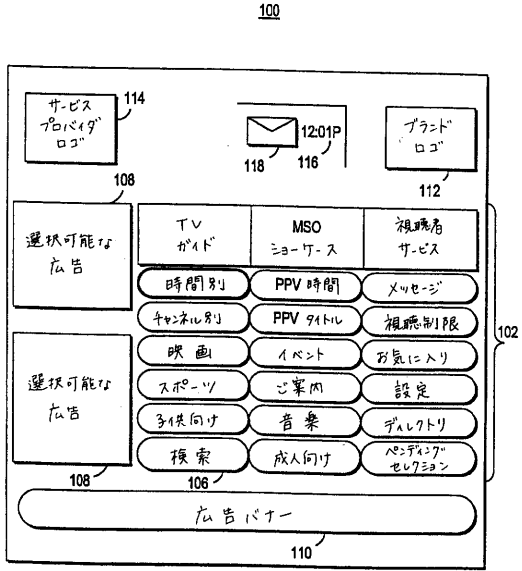 100
サービス
プロバイダ
ロゴ
114
12:01P
118
116
ブランド
ロゴ
112
108
選択可能な
広告
TV
ガイド
MSO
ショーケース
視聴者
サービス
時間別
PPV 時間
メッセージ
チャンネル別
PPV タイトル
視聴制限
102
映画
イベント
お気に入り
選択可能な
広告
スポーツ
ご案内
設定
子供向け
音楽
ディレクトリ
検索
成人向け
ペンディング
セレクション
108
106
広告バナー
110